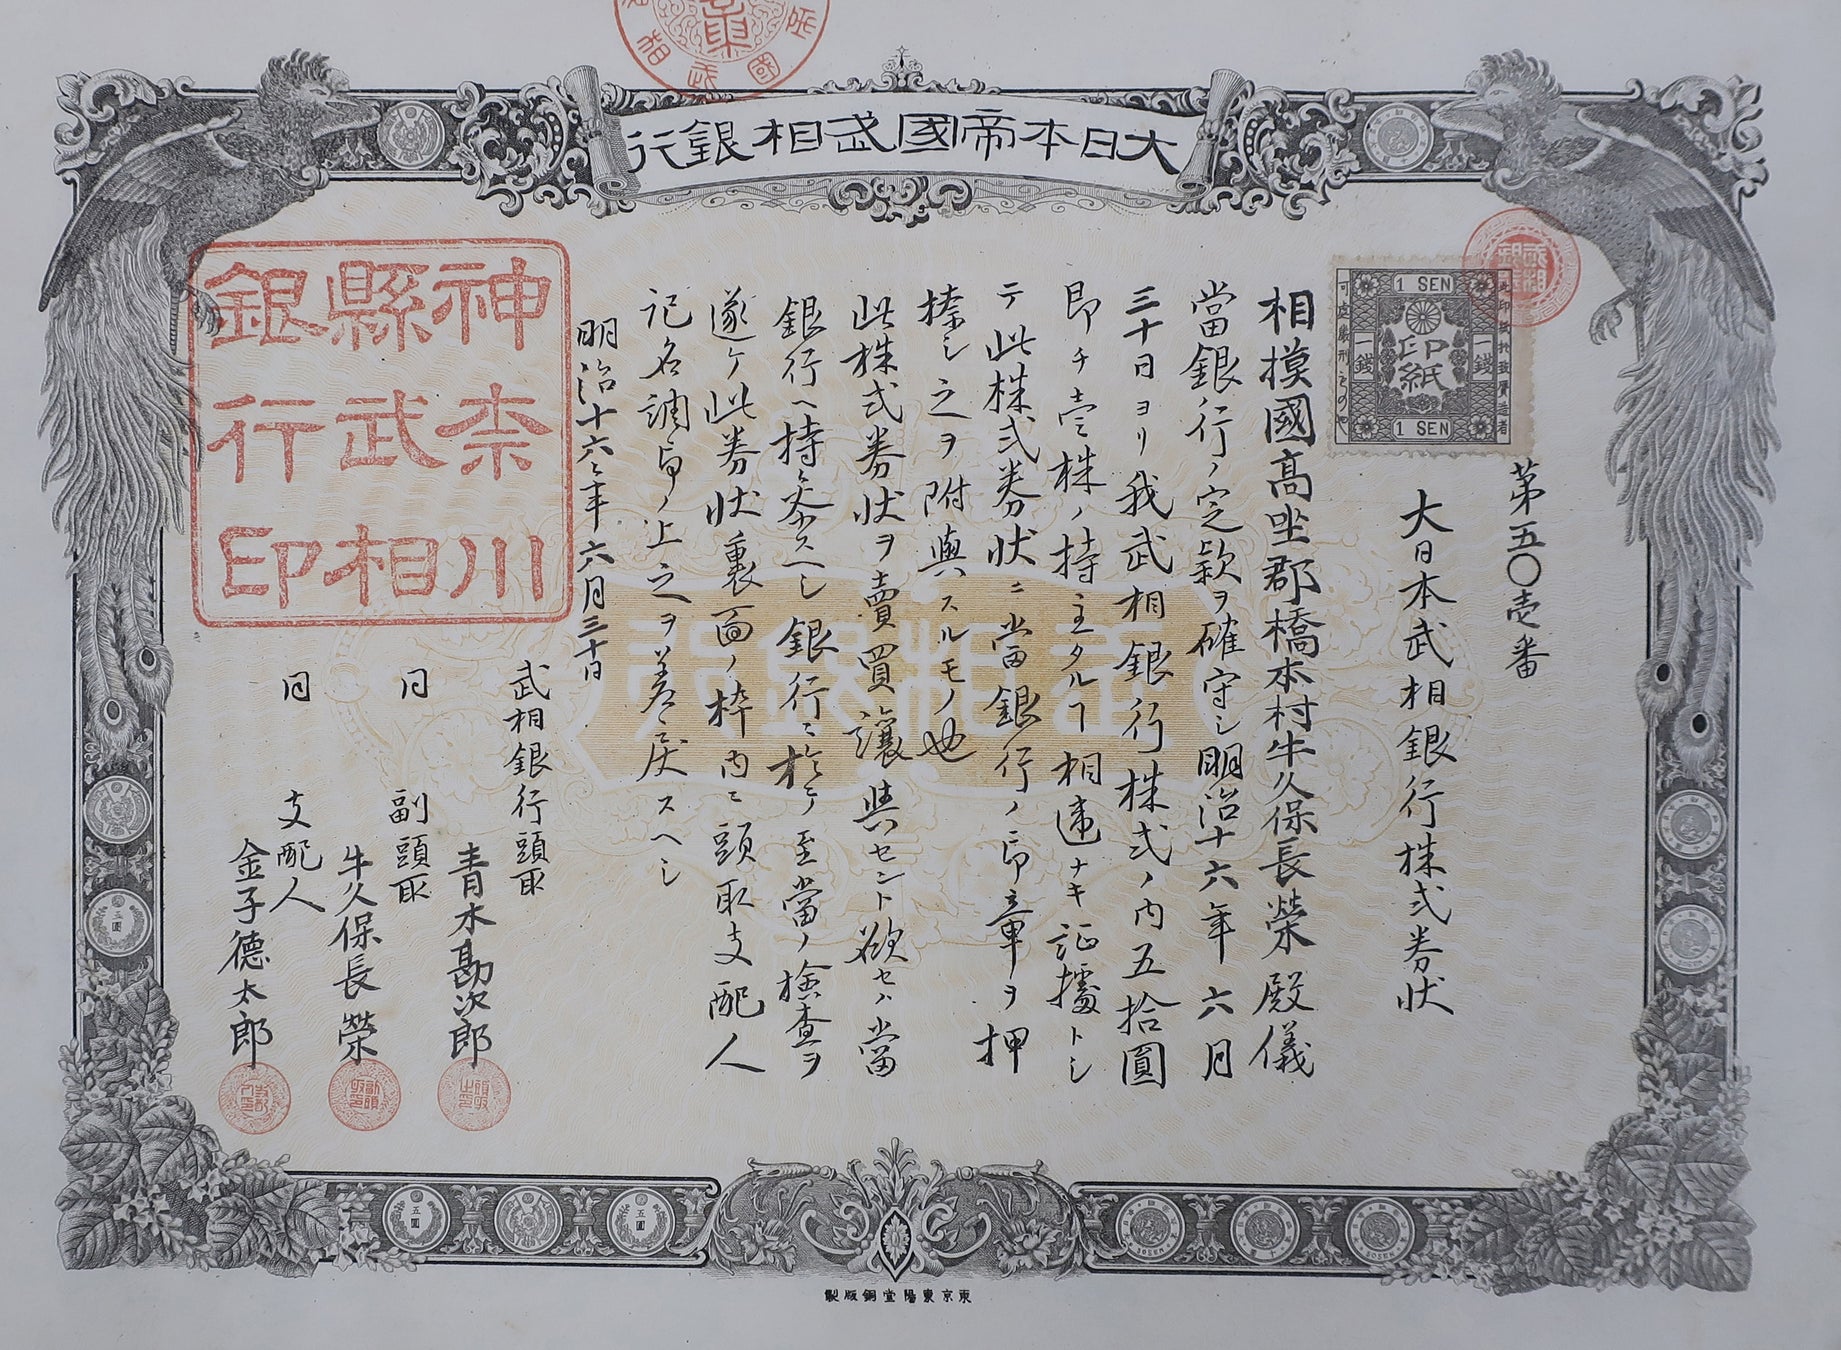 大日本帝國武相銀行
第五〇壱番
1 SEN
印紙
一錢
一錢
1 SEN
大日本武相銀行株式券状
相摸國高坐郡橋本村牛久保長榮殿儀
當銀行ノ定款ヲ確守シ明治十六年六月
三十日ヨリ我武相銀行株式ノ内五拾圓
即チ壱株ノ持主タルヿ相違ナキ証據トシ
テ此株式券状ニ當銀行ノ印章ヲ押
捺シ之ヲ附與スルモノ也
此株式券状ヲ賣買讓與セント欲セハ當
銀行ヘ持参スヘシ銀行ニ於テ至當ノ檢査ヲ
遂ケ此券状裏面ノ枠内ニ頭取支配人
記名調印ノ上之ヲ差戻スヘシ
明治十六年六月三十日
武相銀行頭取
青木勘次郎
同 副頭取
牛久保長榮
同 支配人
金子德太郎
神奈川
縣武相
銀行印
武相銀行
東京東陽堂銅版製